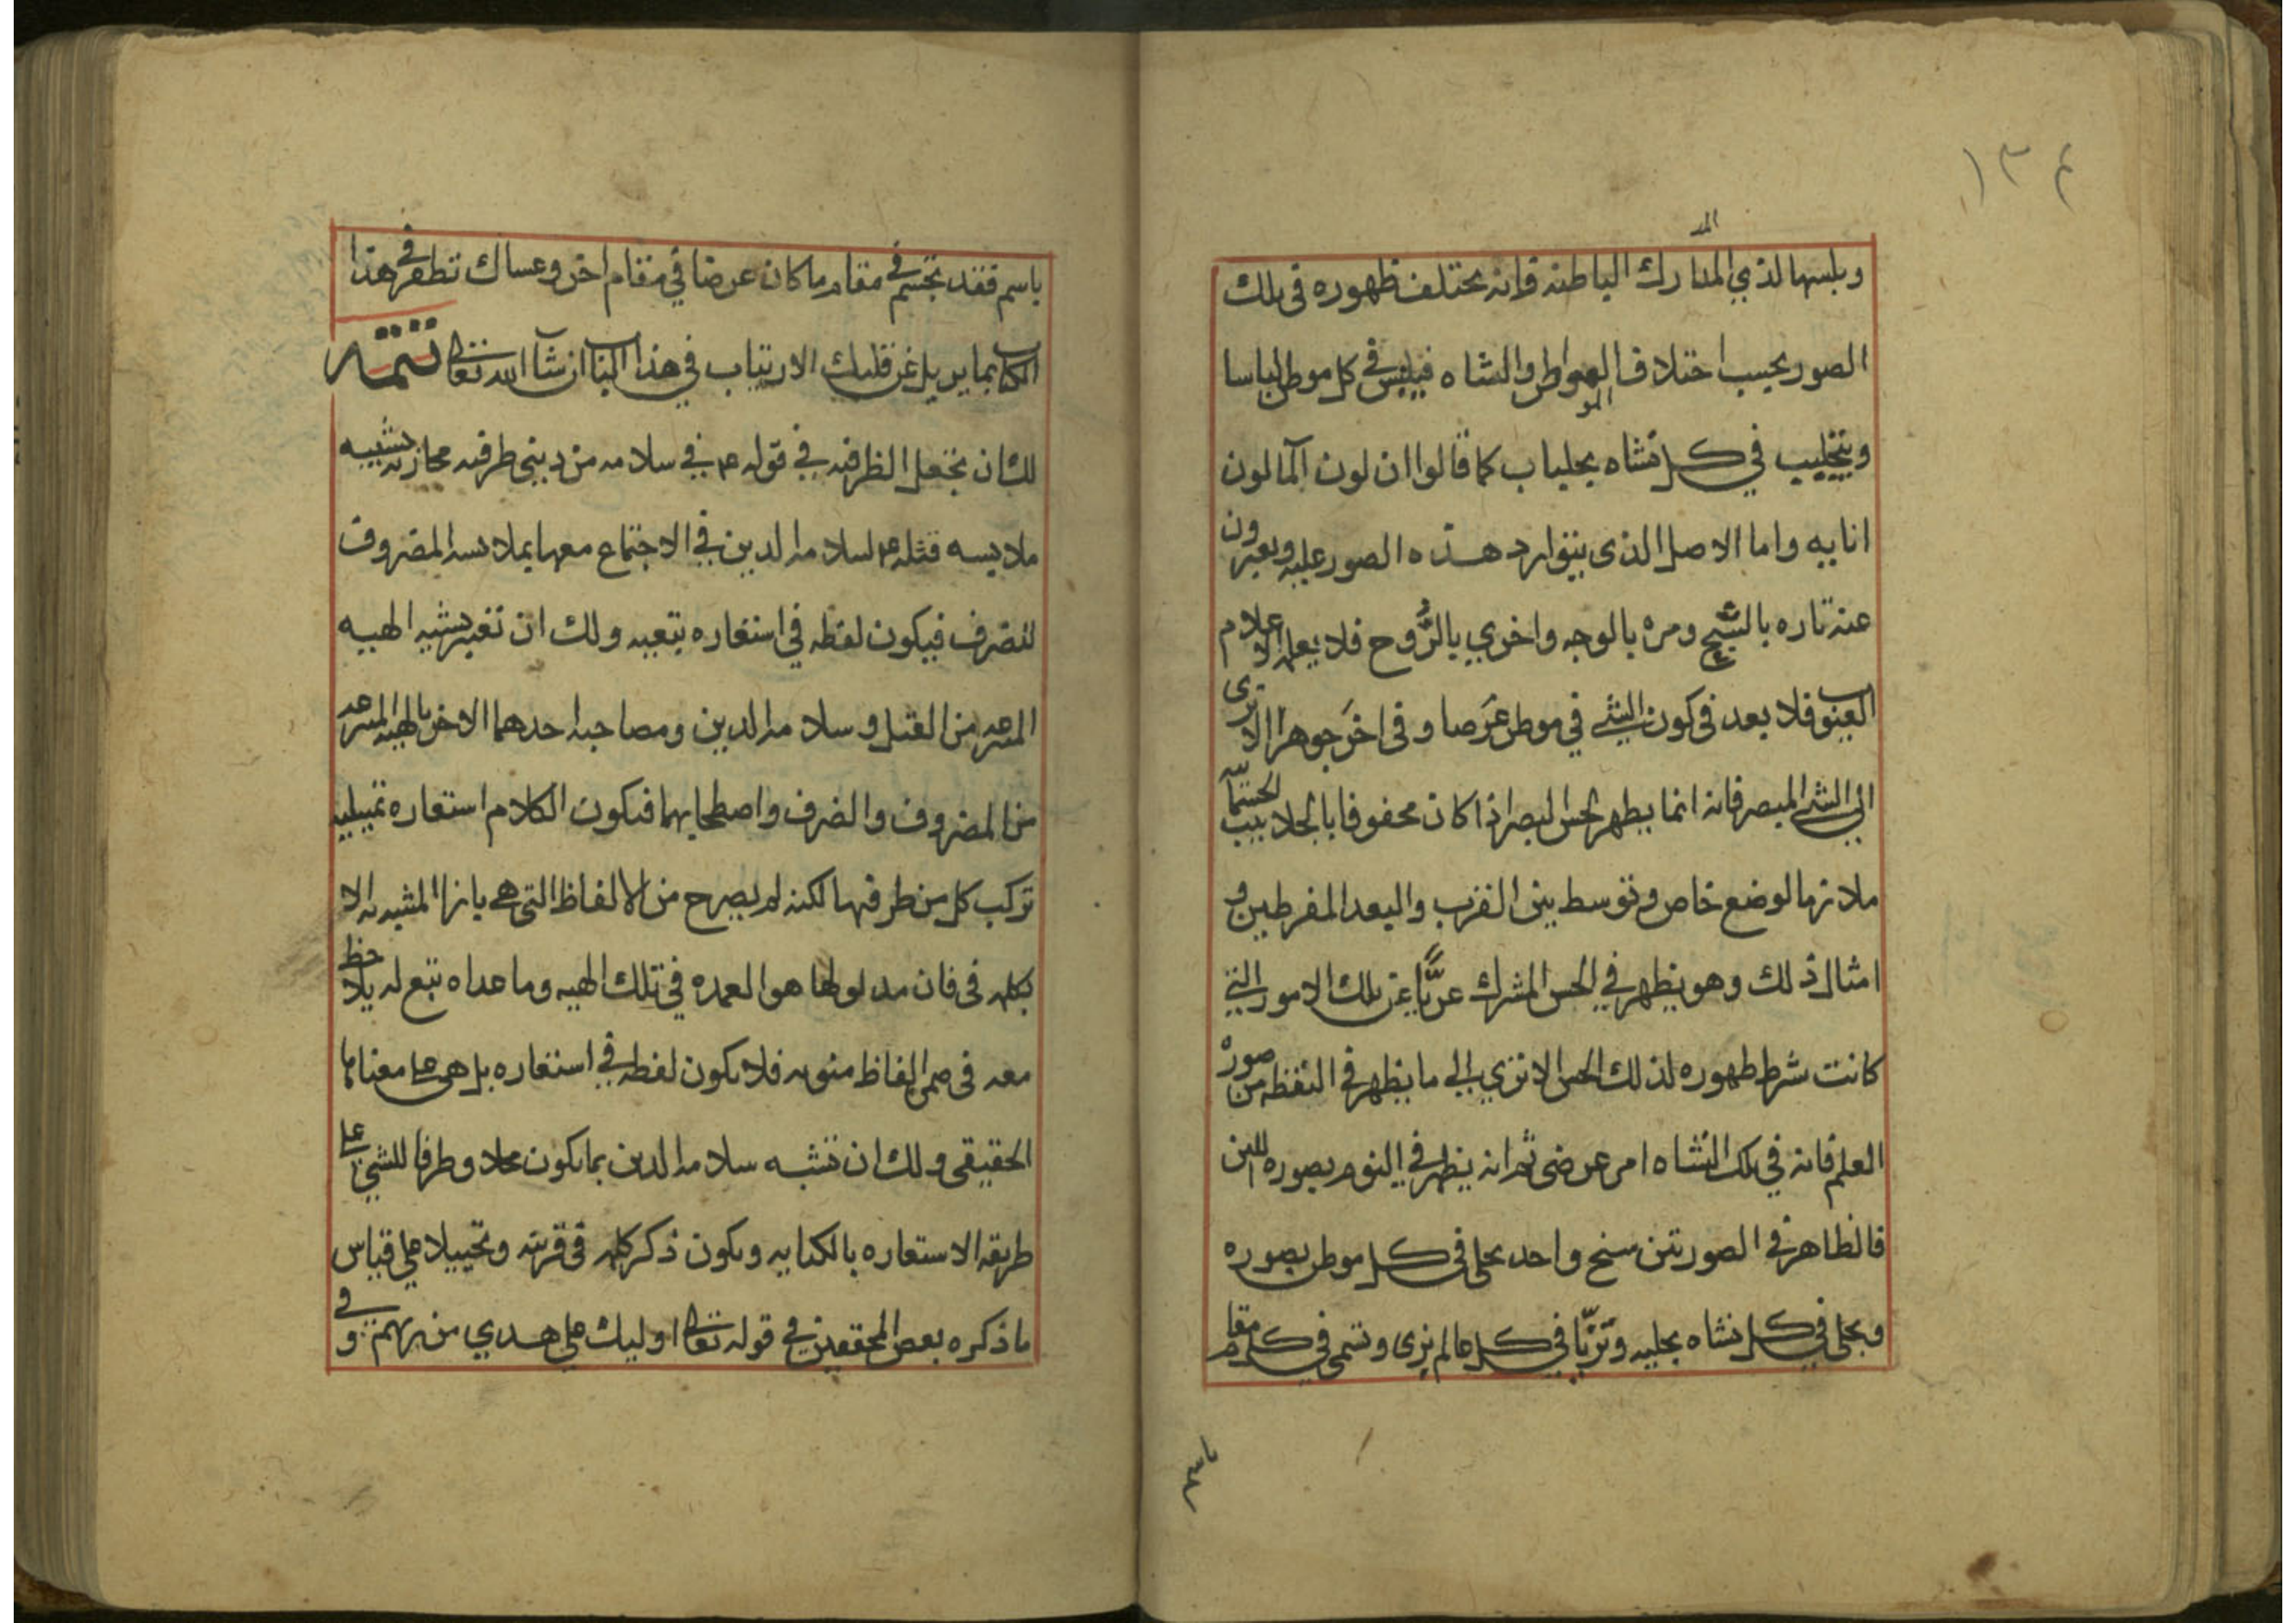 ١٣٤
المد
وبلسها لذي المدارك الباطنه فانه يختلف ظهوره في تلك
الصور بحسب اختلاف المواطن والنشاه فيلبس في كل موطن لباسا
المو
ويتجلبب في كل نشاه بجلباب كما قالوا ان لون المآ لون
انايه واما الاصل الذى يتوارد هذه الصور عليه ويعبرون
عنه تاره بالشبح ومره بالوجه واخري بالرُّوح فلا يعلمه الا علام
الغيوب فلا بعد فى كون الشي في موطن عَرَضا وفى اخَر جوهرا الا ترى
الى الشي المبصر فانه انما يظهر لحس البصر اذا كان محفوفا بالجلابيب الجسمآنيه
ملازما لوضع خاص وتوسط بين القرب والبعد المفرطين و
امثال ذلك وهو يظهر في الحس المشترك عريًّا عن تلك الامور التي
كانت شرط ظهوره لذلك الحس الا تري الى ما يظهر في اليقظه من صورة
العلم فانه في تلك النشاه امر عرضى ثم انه يظهر في النوم بصوره اللبن
فالظاهر في الصورتين سنخ واحد تجلى فى كل موطن بصوره
وتحلى في كل نشاه بحليه وتزيّا في كل عالم بزى وتسمى في كل مقام
باسم
باسم فقد تجسم في مقام ما كان عرضا في مقام اخر وعساك تظفر في هذا
الكتاب بما يزيل عن قلبك الارتياب في هذا الباب ان شآ الله تعالى تتمه
لك ان تجعل الظرفيه في قوله ع في سلامه من ديني ظرفيه مجازيه بتشبيه
ملابسه قتله ع لسلامه الدين في الاجتماع معها بملابسه المضروف
للضرف فيكون لفظه في استعاره تبعيه ولك ان تعتبر تشبيه الهيه
المنتزعه من القتل وسلامه الدين ومصاحبه احدهما الاخر بالهيه المنتزعه
من المضروف والضرف واصطحابهما فيكون الكلام استعاره تمثيليه
تركب كل من طرفيها لكنه لم يصرح من الالفاظ التى هي بازا المشبه به الا
بكلمه فى فان مدلولها هو العمده في تلك الهيه وما عداه تبع له يلاحظ
معه فى ضمن الفاظ منويه فلا يكون لفظه في استعاره بل هى على معناها
الحقيقي ولك ان تشبه سلامه الدين بما يكون محلا وظرفا للشي على
طريقه الاستعاره بالكنايه ويكون ذكر كلمه فى قرينه وتخييلا على قياس
ما ذكره بعض المحققين في قوله تعالى اوليك على هدي من ربهم وفي